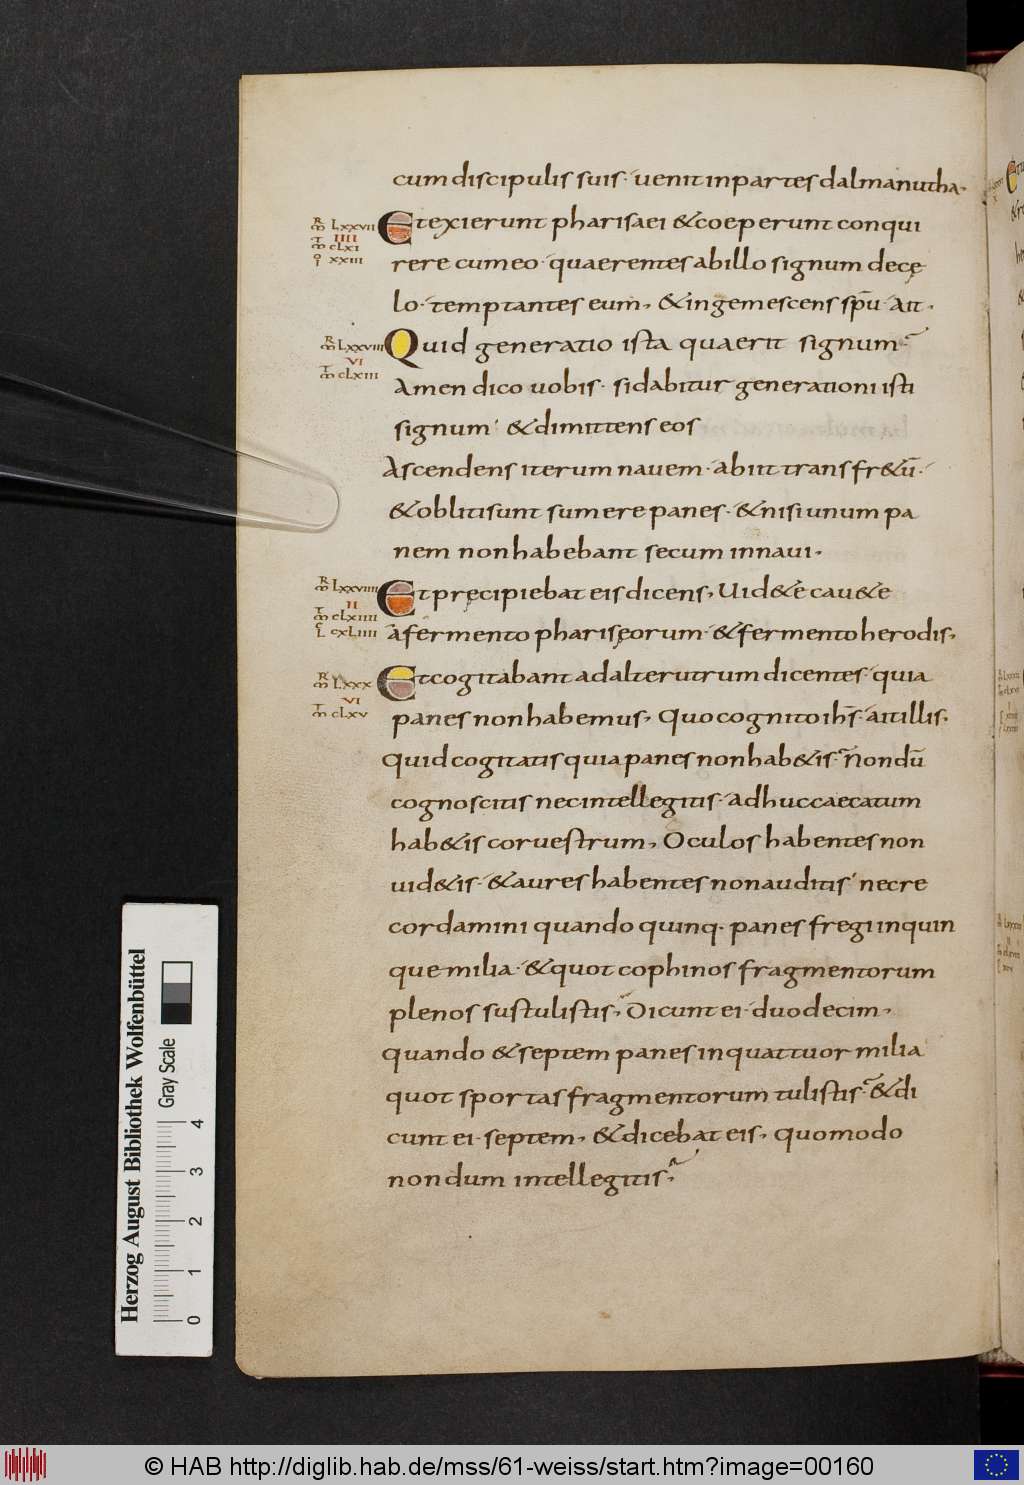 cum discipulis suis· uenit in partes dalmanutha·
Et exierunt pharisaei & coeperunt conqui
rere cum eo· quaerentes ab illo signum de cę
lo· temptantes eum, & ingemescens sp̄u· ait·
Quid generatio ista quaerit signum?
Amen dico uobis· si dabitur generationi isti
signum· & dimittens eos
Ascendens iterum nauem· abiit trans fr&ū·
& obliti sunt sumere panes· & nisi unum pa
nem non habebant secum in naui,
Et pręcipiebat eis dicens, Uid&e cau&e
a fermento pharisęorum· & fermento herodis,
Et cogitabant ad alterutrum dicentes· quia
panes non habemus, Quo cognito ih̄s· ait illis,
Quid cogitatis quia panes non hab&is? Nondū
cognoscitis nec intellegitis· adhuc caecatum
hab&is cor uestrum, Oculos habentes non
uid&is· & aures habentes non auditis· nec re
cordamini quando quinq· panes fregi in quin
que milia· & quot cophinos fragmentorum
plenos sustulistis? Dicunt ei· duodecim,
quando & septem panes in quattuor milia
quot sportas fragmentorum tulistis? & di
cunt ei· septem, & dicebat eis, quomodo
nondum intellegitis?
LXXVII
IIII
CLXI
XXIII
LXXVIII
VI
CLXIII
LXXVIIII
II
CLXIIII
L CXLIIII
LXXX
VI
CLXV
Herzog August Bibliothek Wolfenbüttel
Gray Scale
0 1 2 3 4
© HAB http://diglib.hab.de/mss/61-weiss/start.htm?image=00160